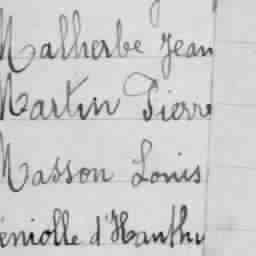 Malherbe Jean
Martin Pierre
Masson Louis
éniolle d'Hanthu